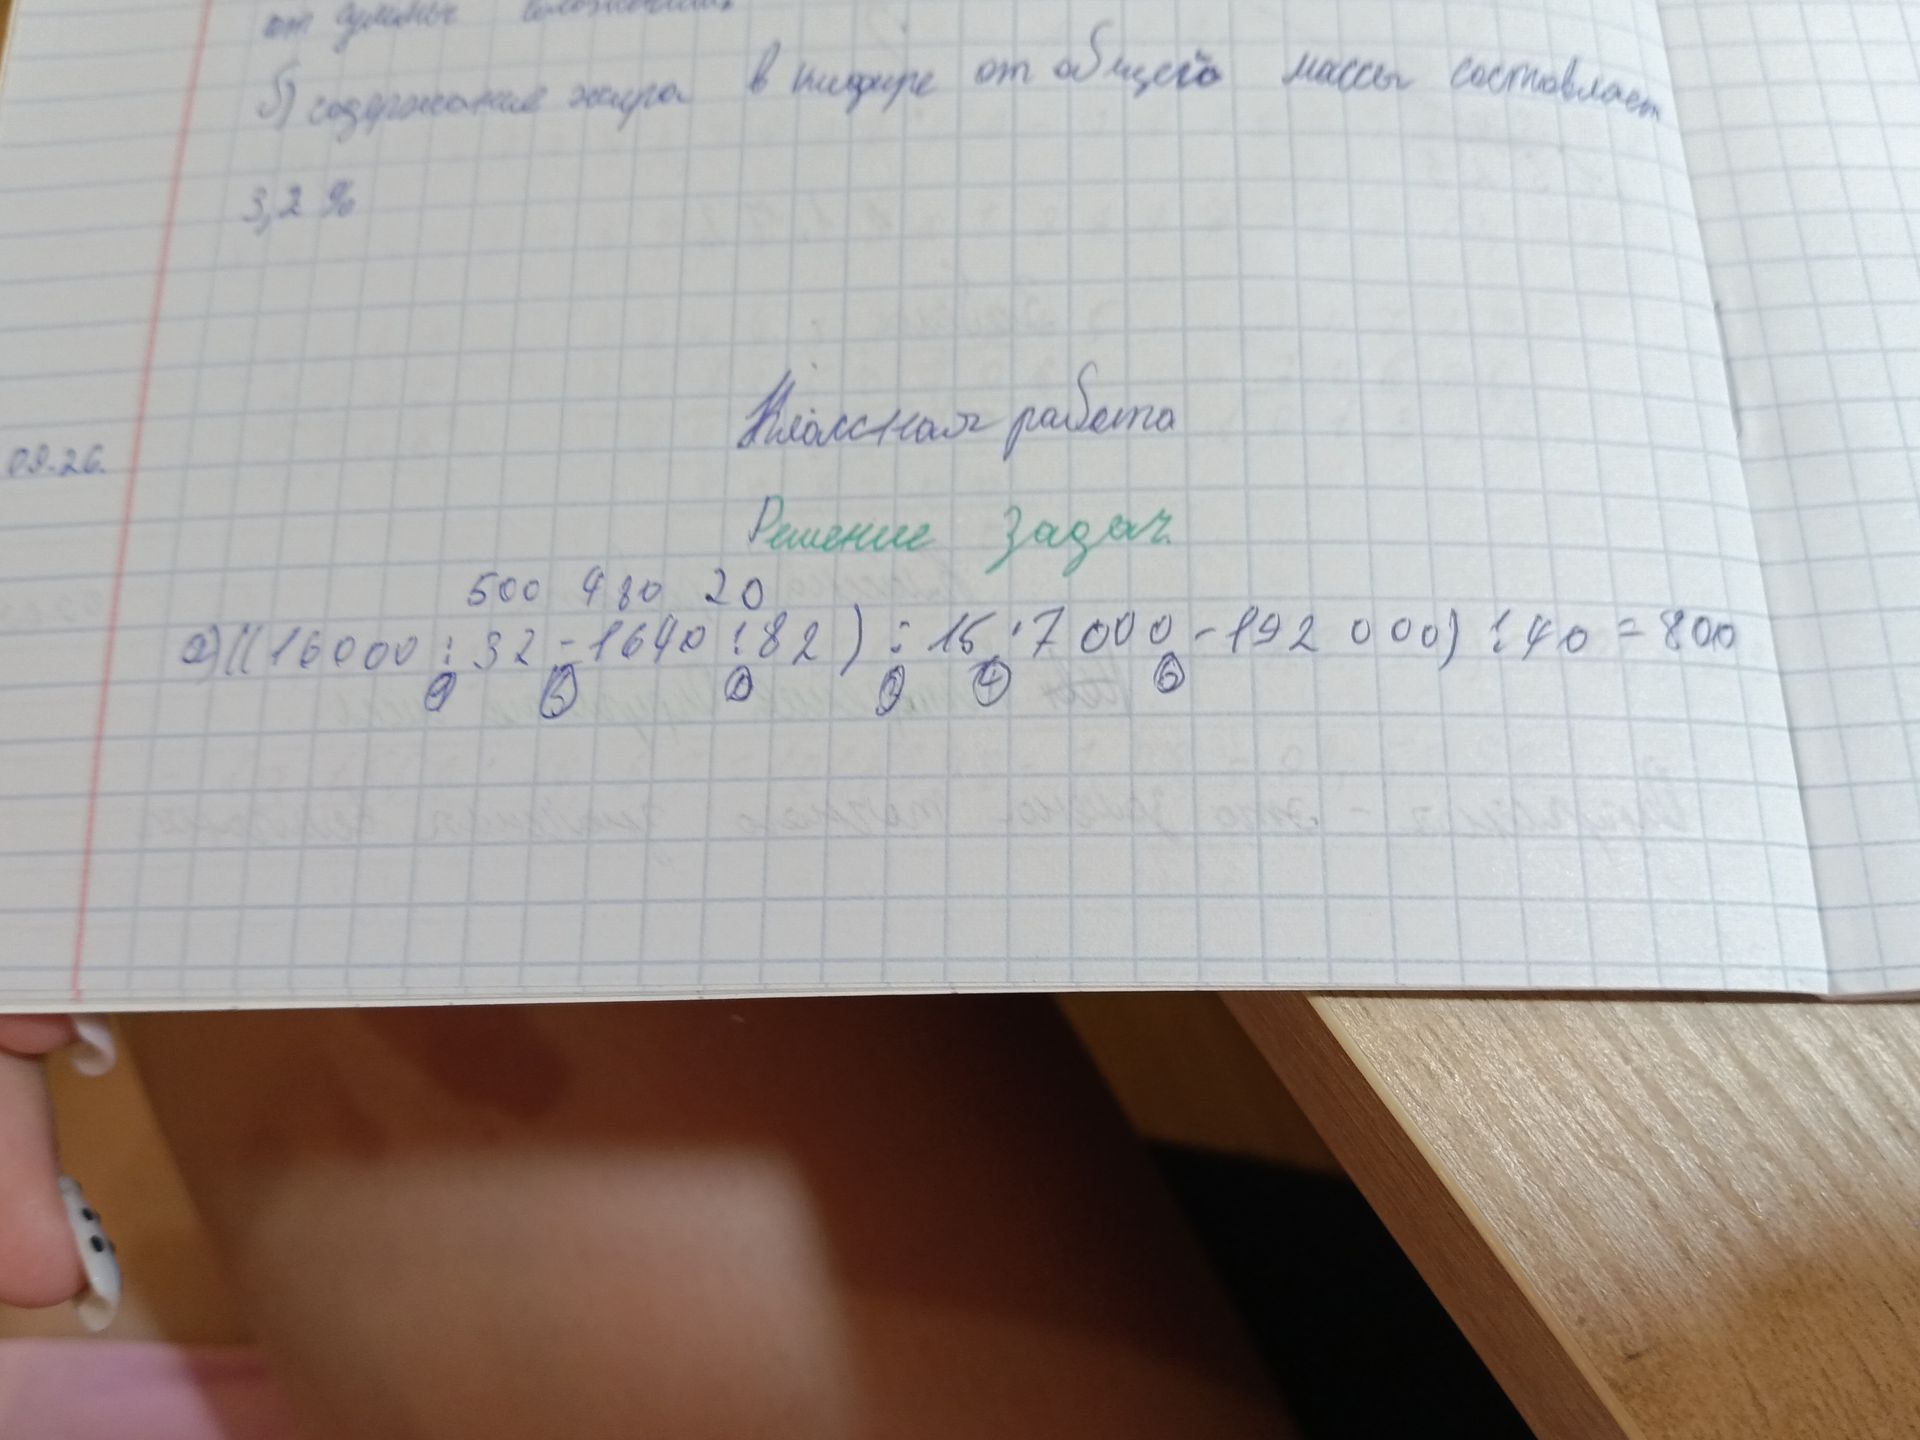 от суммы
б) содержание жира в кефире от общего массы составляет
3,2 %
Классная работа
09.26.
Решение задач.
500 480 20
а) ((16000 : 32 - 1640 : 82) : 15 · 7 000 - 192 000) : 40 = 800
1 3 2 3 4 5